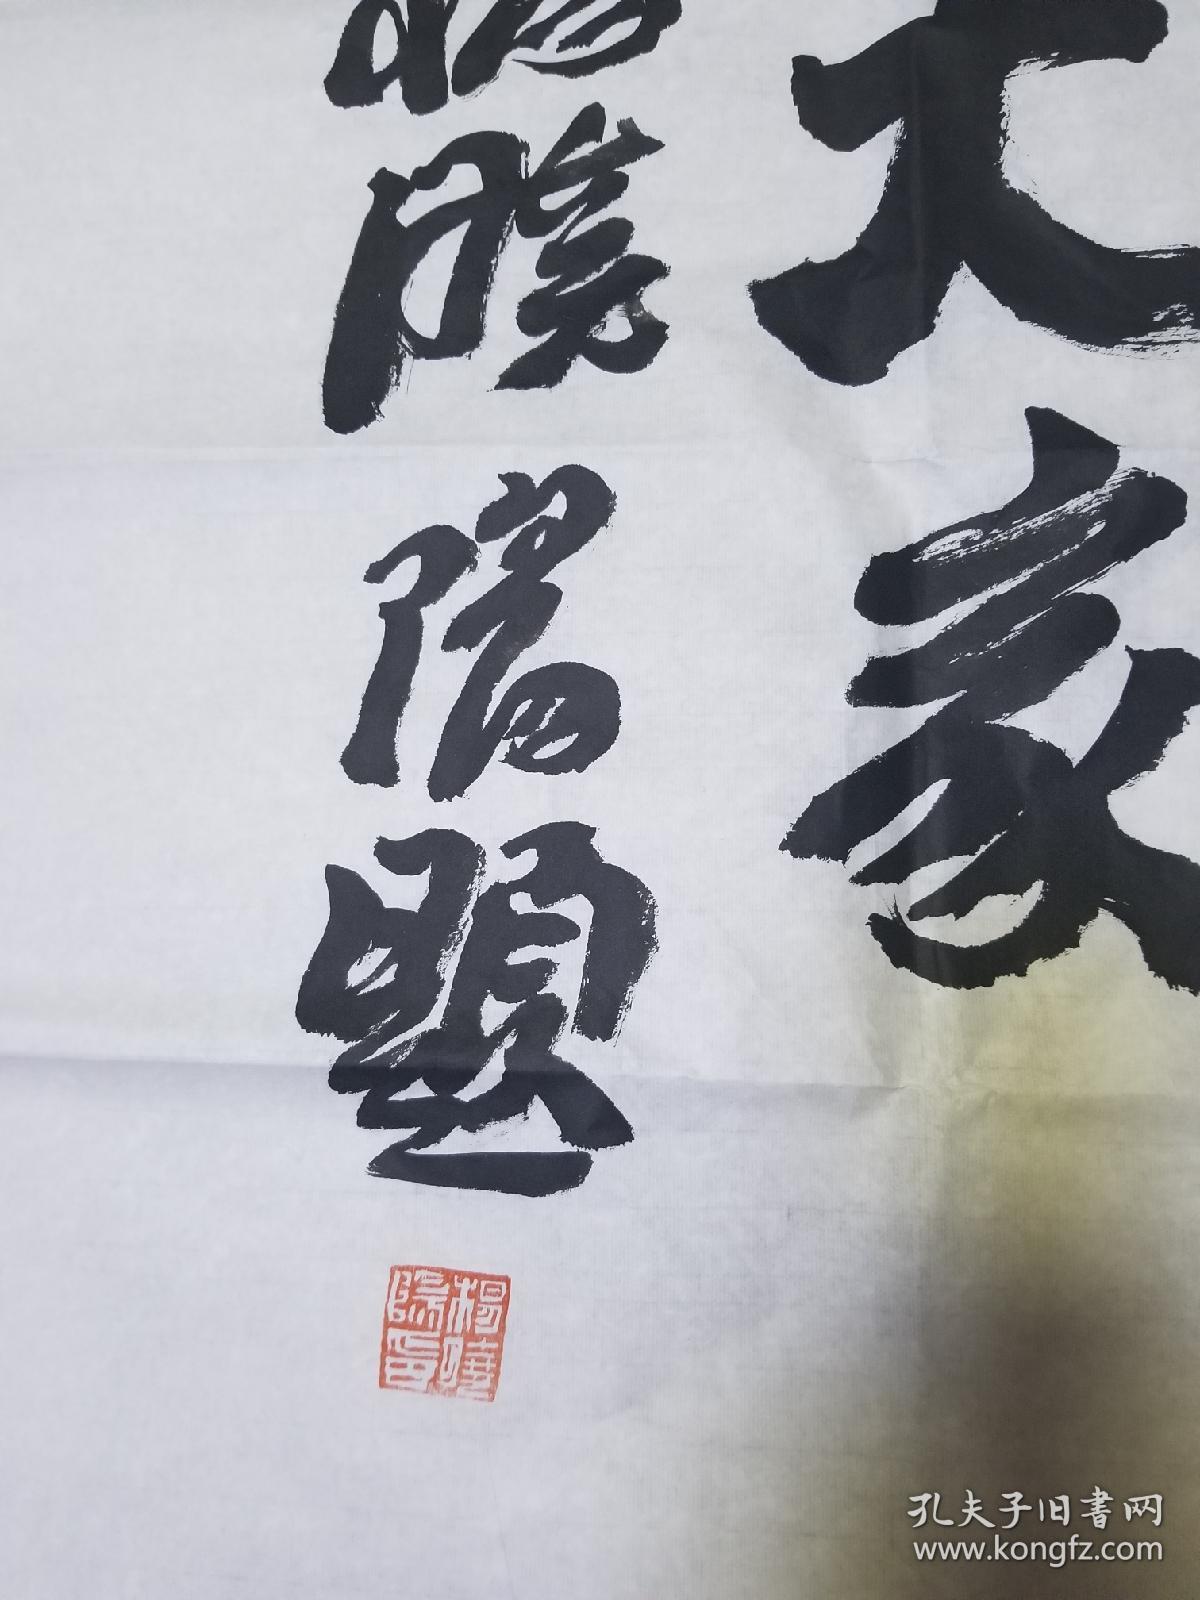 大家
楊曉陽題
楊曉
陽印
孔夫子旧書网
www.kongfz.com